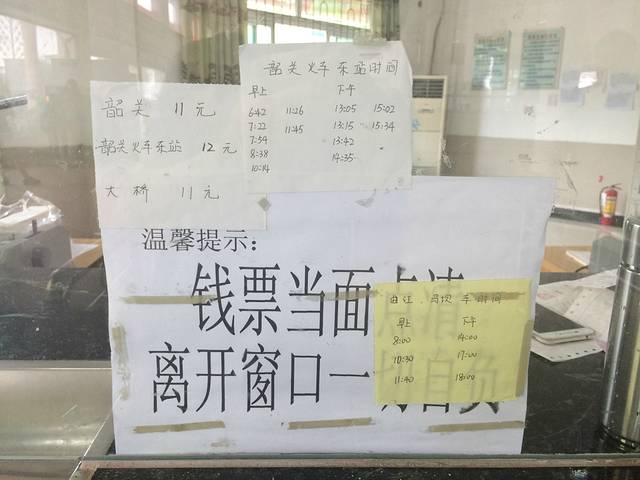 韶关 11元
韶关火车东站 12元
大桥 11元
韶关火车东站时间
早上 下午
6:42 11:26 13:05 15:02
7:22 11:45 13:15 15:34
7:54 13:42
8:38 14:35
10:14
温馨提示:
钱票当面点清
离开窗口一切自负
曲江、马坝 车时间
早上 下午
8:00 14:00
10:30 17:00
11:40 18:00